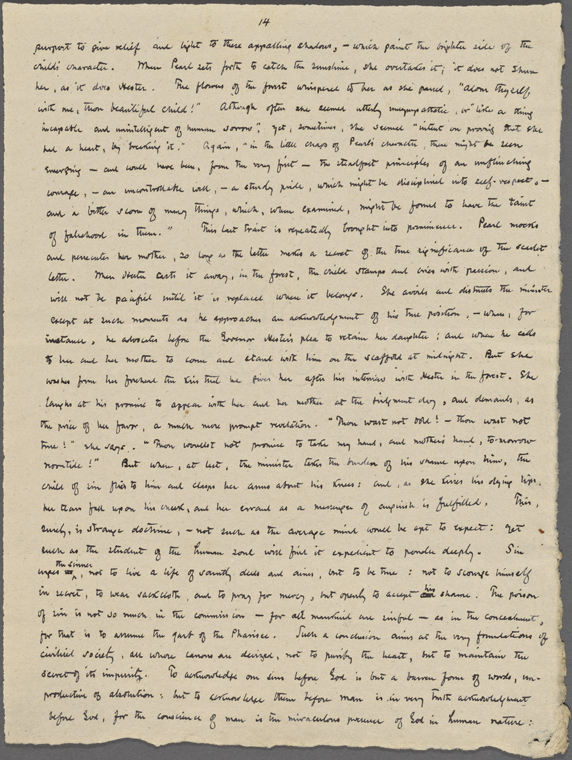 14
purport to give relief and light to these appalling shadows, – which paint the brighter side of the
child's character. When Pearl sets forth to catch the sunshine, she overtakes it; it does not shun
her, as it does Hester. The flowers of the forest whispered to her as she passed, "Adorn thyself
with me, thou beautiful child!" Although often she seemed utterly unsympathetic, or "like a thing
incapable and unintelligent of human sorrow", yet, sometimes, she seemed "intent on proving that she
had a heart, by breaking it." Again, "in the little chaos of Pearl's character, there might be seen
emerging – and could have been, from the very first – the steadfast principles of an unflinching
courage, – an uncontrollable will, – a sturdy pride, which might be disciplined into self-respect, –
and a bitter scorn of many things, which, when examined, might be found to have the taint
of falsehood in them." This last trait is repeatedly brought into prominence. Pearl mocks
and persecutes her mother, so long as the latter makes a secret of the true significance of the scarlet
letter. When Hester casts it away, in the forest, the child stamps and cries with passion, and
will not be pacified until it is replaced where it belongs. She avoids and distrusts the minister
except at such moments as he approaches an acknowledgment of his true position, – when, for
instance, he advocates before the Governor Hester's plea to retain her daughter; and when he calls
to her and her mother to come and stand with him on the scaffold at midnight. But she
washes from her forehead the kiss that he gives her after his interview with Hester in the forest. She
laughs at his promise to appear with her and her mother at the judgment day, and demands, as
the price of her favor, a much more prompt revelation. "Thou wast not bold! – thou wast not
true!" she says. "Thou wouldst not promise to take my hand, and mother's hand, to-morrow
noontide!" But when, at last, the minister takes the burden of his shame upon him, the
child of sin flies to him and clasps her arms about his knees: and, as she kisses his dying lips,
her tears fall upon his cheek, and her errand as a messenger of anguish is fulfilled. This,
surely, is strange doctrine, – not such as the average mind would be apt to expect: yet
such as the student of the human soul will find it expedient to ponder deeply. Sin
urges the sinner, not to live a life of saintly deeds and aims, but to be true: not to scourge himself
in secret, to wear sackcloth, and to pray for mercy, but openly to accept his shame. The poison
of sin is not so much in the commission – for all mankind are sinful – as in the concealment,
for that is to assume the garb of the Pharisee. Such a conclusion aims at the very foundations of
civilized society, all whose canons are devised, not to purify the heart, but to maintain the
secret of its impurity. To acknowledge our sins before God is but a barren form of words, un-
productive of absolution: but to acknowledge them before man is in very truth acknowledgment
before God, for the conscience of man is the miraculous presence of God in human nature: